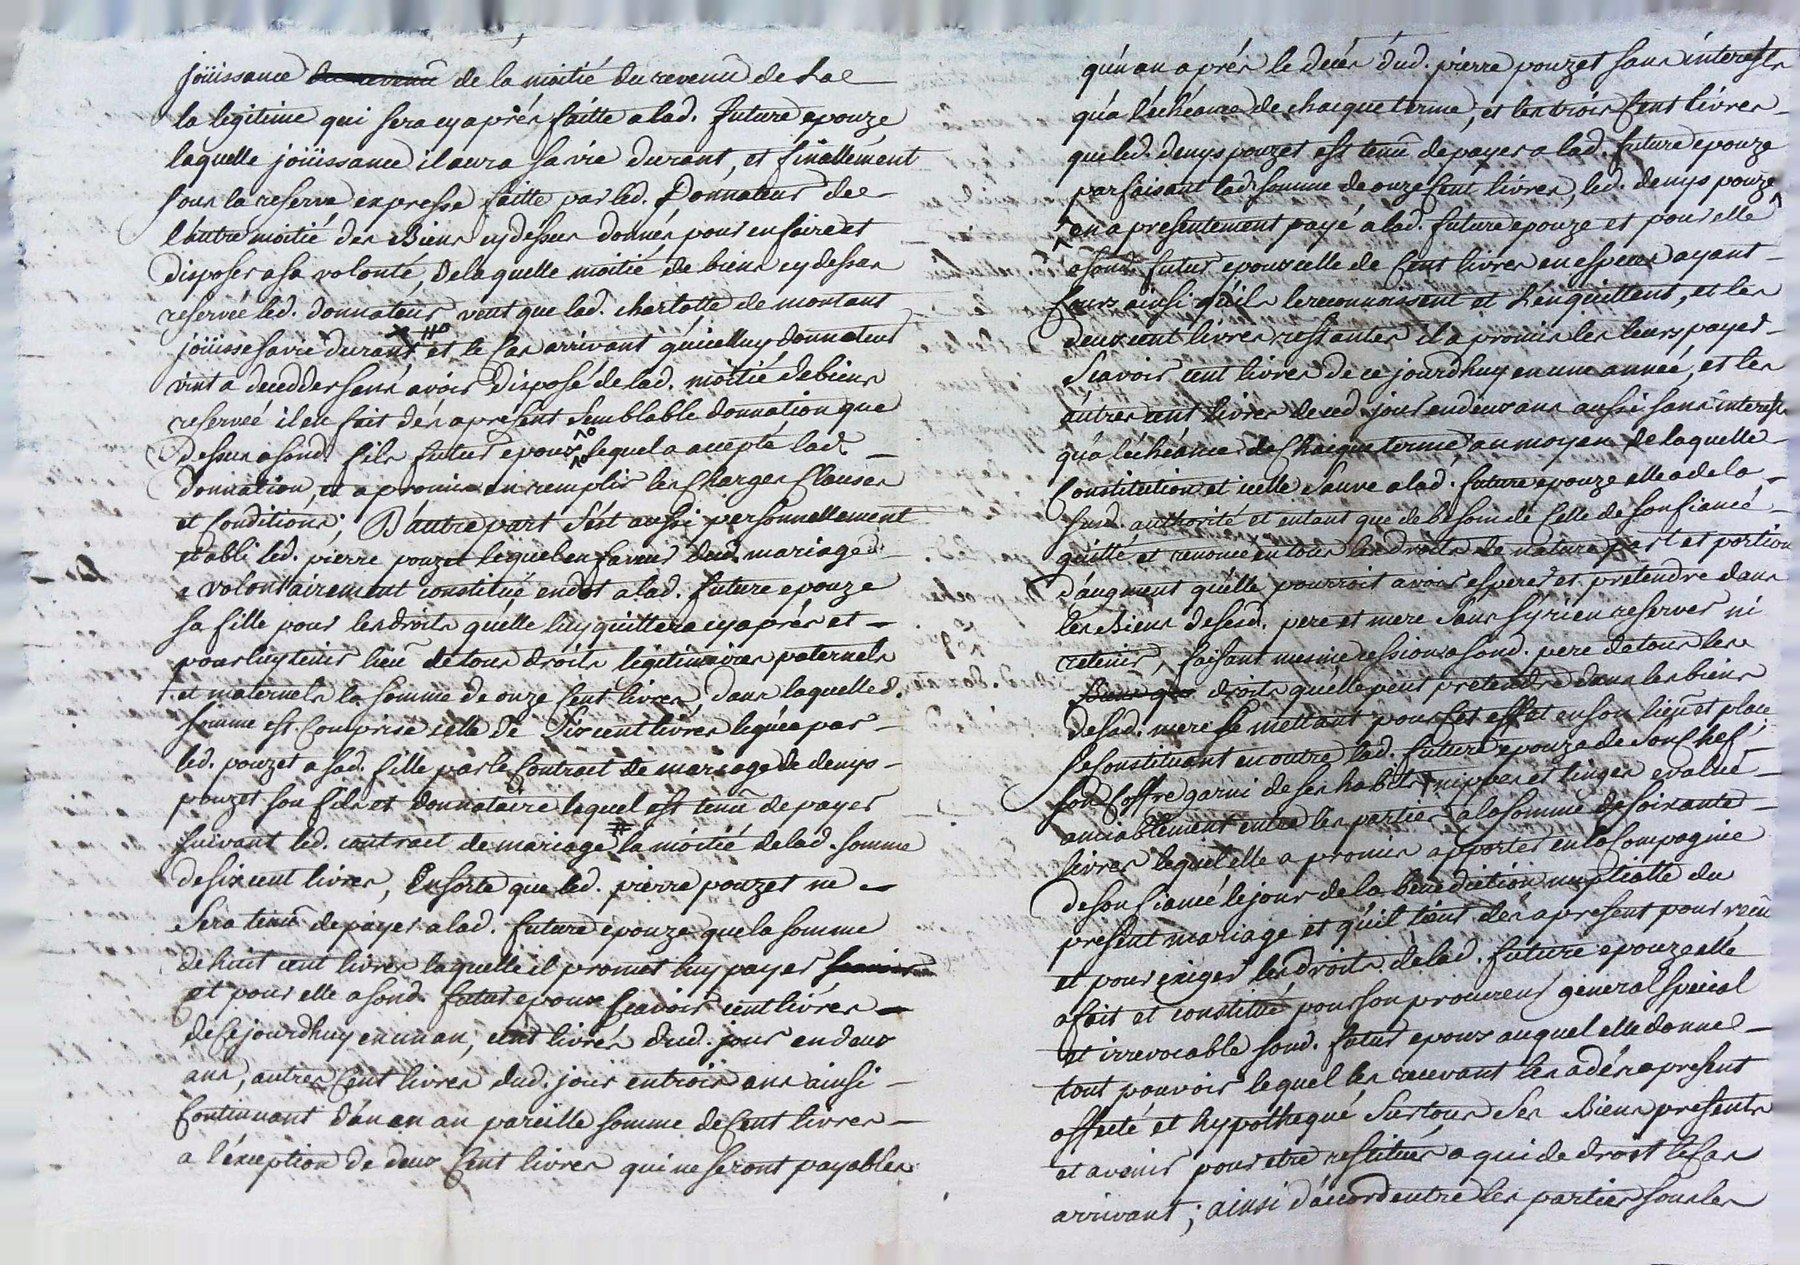 joüissance du revenu de la moitié du revenu de la
la legitime qui sera cy aprés faitte a lad. future epouze
laquelle joüissance il aura sa vie durant, et finallement
sous la reserve expresse faitte par led. Donnateur de
l'autre moitié des Biens cy dessus donnés pour en faire et
disposer a sa volonté, de laquelle moitié de biens cy dessus
reservée led. donnateur veut que lad. charlotte de montant
joüisse sa vie durant et le Cas arrivant qu'icelluy donnateur
vint a decedder sans avoir disposé de lad. moitié de biens
reservée il en fait dés a présent semblable donnation que
dessus a sond. fils futur epoux lequel a accepté lad.
donnation, et a promis en remplir les Charges Clauses
et Conditions; D'autre part s'est aussi personnellement
etabli led. pierre pouzet lequel en faveur dud. mariage
a volontairement constitué en dot a lad. future epouze
sa fille pour les droits quelle luy quittera cy aprés et
pour luy tenir lieu de tous droits légitimaires paternels
et maternels la somme de onze Cent livres, dans laquelle d.
somme est Comprise celle de Six cent livres leguée par
led. pouzet a sad. fille par le Contrat de mariage de denys
pouzet son fils et donnataire lequel est tenu de payer
suivant led. contract de mariage la moitié de lad. somme
de six cent livres, Ensorte que led. pierre pouzet ne
sera tenu de payer a lad. future epouze que la somme
de huit cent livres laquelle il promet luy payer
et pour elle a sond. futur epoux scavoir cent livres
de Ce jourdhuy en un an, cent livres dud. jour en deux
ans, autres Cent livres dud. jour en trois ans ainsi
Continuant d'an en an pareille somme de Cent livres
a l'éxception de deux Cent livres qui ne seront payables
qu'un an aprés le decés dud. pierre pouzet sans intérests
qu'a l'échéance de chacque terme, et les trois Cent livres
que led. denys pouzet est tenu de payer a lad. future epouze
parfaisant lad. somme de onze Cent livres, led. denys pouzet
en a presentement payé a lad. future epouze et pour elle
a sond. futur epoux celle de Cent livres en especes ayant
Cours ainsi qu'ils le reconnoissent et l'en quittent, et les
deux cent livres restantes il a promis les leurs payer
Scavoir cent livres de ce jourdhuy en une année, et les
autres cent livres de ced. jour en deux ans aussi sans intérests
qu'a l'échéance de Chacque terme, au moyen de laquelle
Constitution et icelle sauve a lad. future epouze elle a de la
susd. authorité et entant que de besoin de Celle de son fiancé
quitté et renoncé en tous les droits de nature part et portion
d'augment qu'elle pourroit avoir esperer et pretendre dans
les Biens de sesd. pere et mere sans sy rien reserver ni
retenir, faisant mesme cession a sond. pere de tous les
droits quelle peut prétendre dans les biens
de sad. mere le mettant pour Cet effet en son lieu et place
se constituant en outre lad. future epouze de son Chef
son Coffre garni de ses habits nippes et linges evalué
amiablement entre les parties a la somme de soixante
livres lequel elle a promis apporter en la Compagnie
de son fiancé le jour de la bénédiction nuptialle du
present mariage et qu'il tient dés a present pour reçu
et pour exiger les droits de lad. future epouze elle
a fait et constitué pour son procureur general special
et irrevocable sond. futur epoux auquel elle donne
tout pouvoir lequel les recevant les a dés a present
affecté et hypothequé sur tous ses Biens presents
et avenir pour etre restitués a qui de droit le Cas
arrivant; ainsi d'accord entre les parties sous les